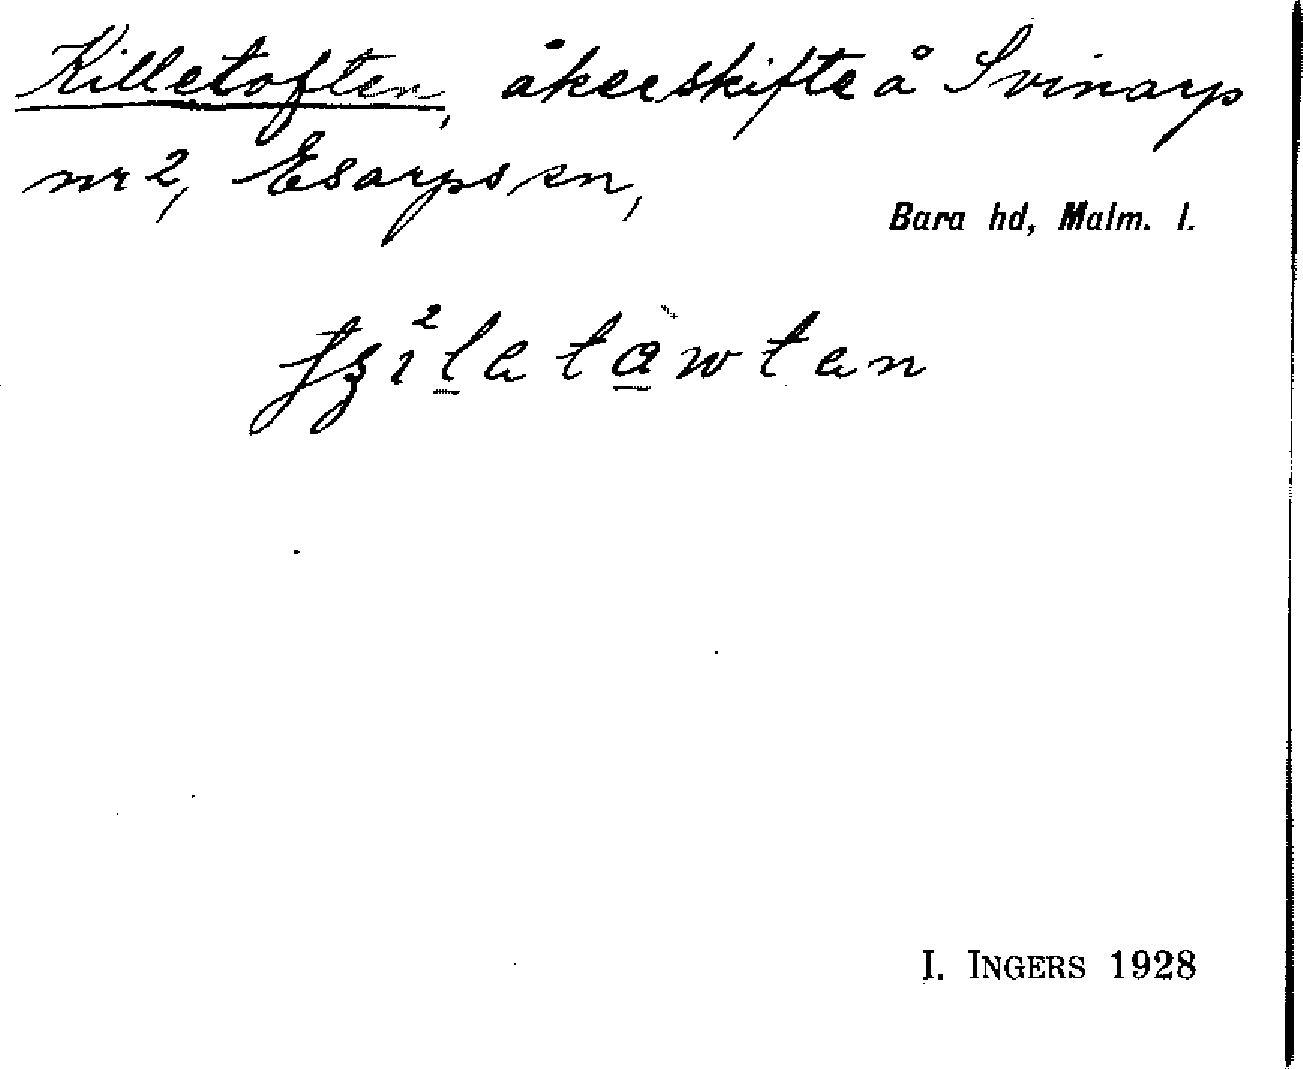 Killetoften, åkerskifte å Svinarp
nr 2, Esarps sn,
Bara hd, Malm. l.
I. INGERS 1928